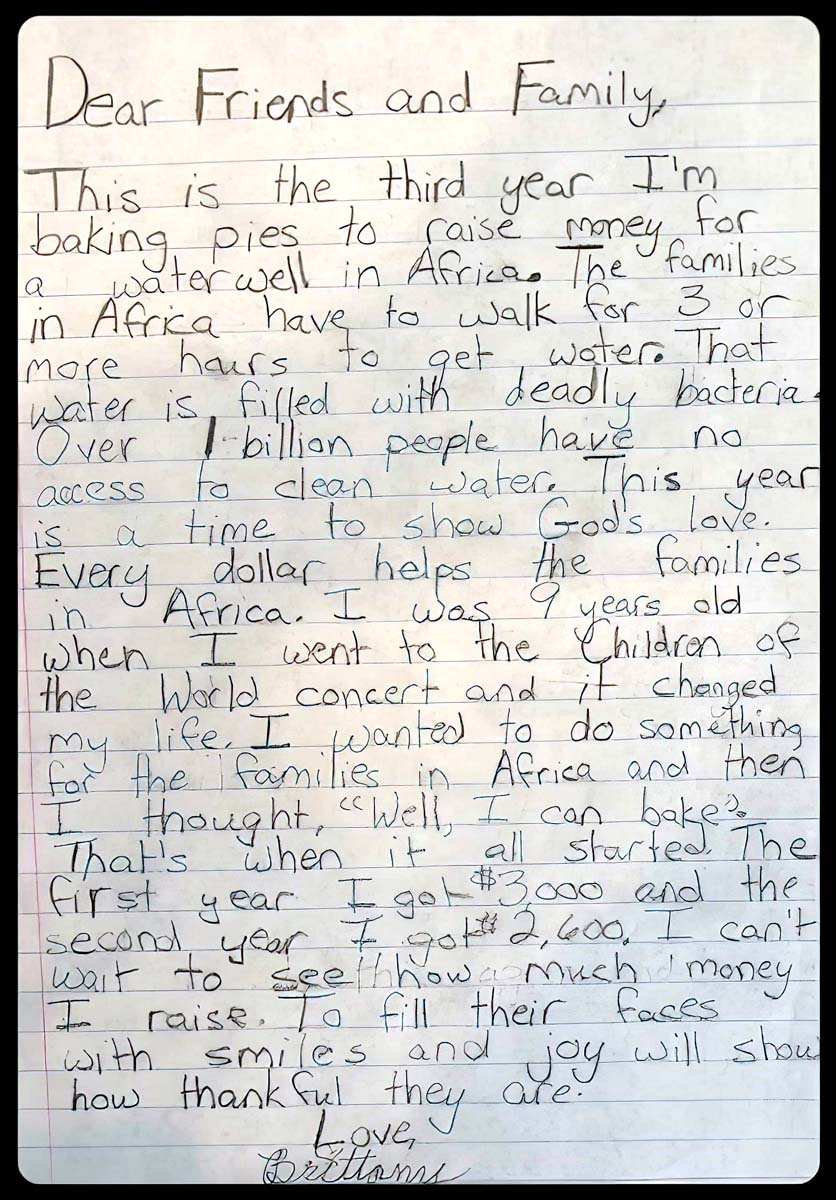 Dear Friends and Family,
This is the third year I'm
baking pies to raise money for
a water well in Africa. The families
in Africa have to walk for 3 or
more hours to get water. That
water is filled with deadly bacteria.
Over 1 billion people have no
access to clean water. This year
is a time to show God's love.
Every dollar helps the families
in Africa. I was 9 years old
when I went to the Children of
the World concert and it changed
my life. I wanted to do something
for the families in Africa and then
I thought, "Well, I can bake".
That's when it all started. The
first year I got $3,000 and the
second year I got $2,600. I can't
wait to see how much money
I raise. To fill their faces
with smiles and joy will show
how thankful they are.
Love,
Brittany